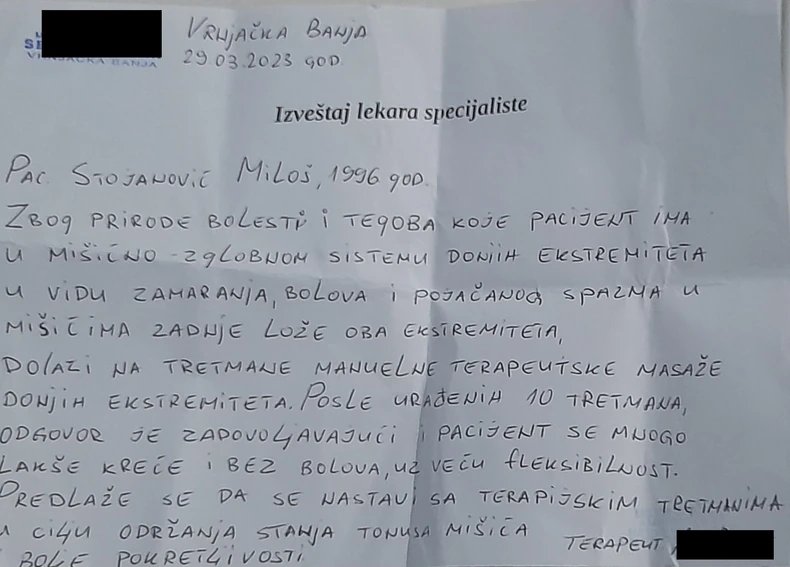 VRNJAČKA BANJA
29.03.2023 GOD.
VRNJAČKA BANJA
Izveštaj lekara specijaliste
PAC. STOJANOVIĆ MILOŠ, 1996 GOD.
ZBOG PRIRODE BOLESTI I TEGOBA KOJE PACIJENT IMA
U MIŠIĆNO-ZGLOBNOM SISTEMU DONJIH EKSTREMITETA
U VIDU ZAMARANJA, BOLOVA I POJAČANOG SPAZMA U
MIŠIĆIMA ZADNJE LOŽE OBA EKSTREMITETA,
DOLAZI NA TRETMANE MANUELNE TERAPEUTSKE MASAŽE
DONJIH EKSTREMITETA. POSLE URAĐENIH 10 TRETMANA,
ODGOVOR JE ZADOVOLJAVAJUĆI I PACIJENT SE MNOGO
LAKŠE KREĆE I BEZ BOLOVA, UZ VEĆU FLEKSIBILNOST.
PREDLAŽE SE DA SE NASTAVI SA TERAPIJSKIM TRETMANIMA
U CILJU ODRŽANJA STANJA TONUSA MIŠIĆA
I BOLJE POKRETLJIVOSTI
TERAPEUT